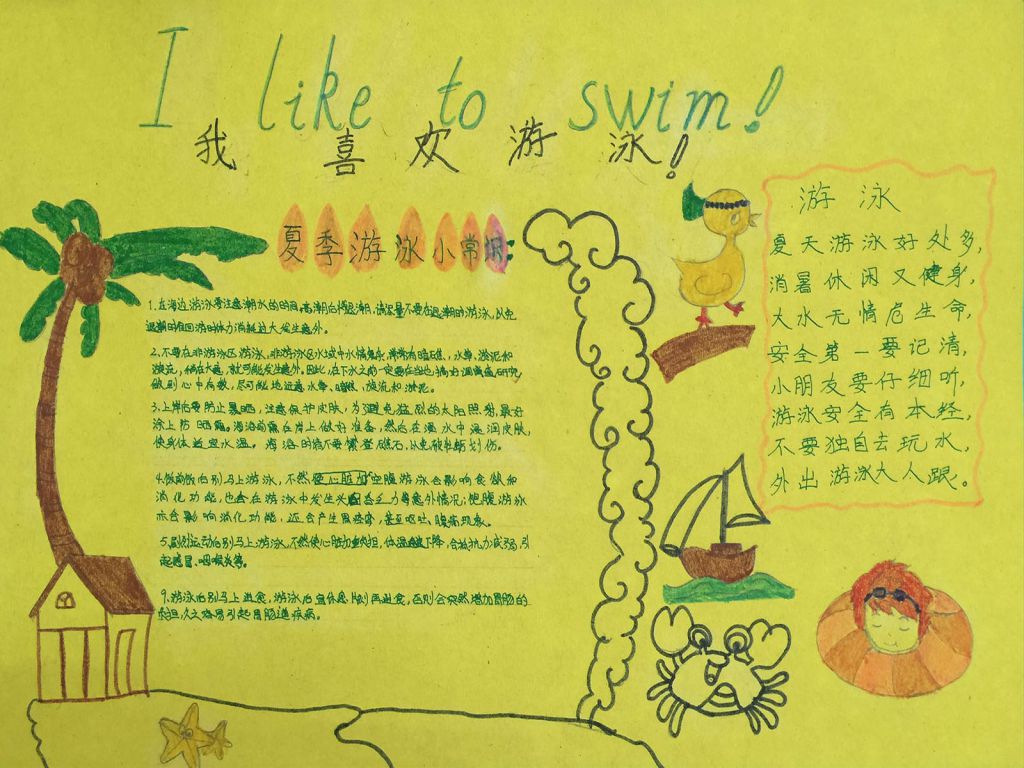 I like to swim!
我喜欢游泳!
夏季游泳小常识:
1.在海边游泳要注意潮水的时间,高潮后接退潮,请尽量不要在退潮时游泳,以免
退潮时往回游时体力消耗过大发生意外。
2.不要在非游泳区游泳,非游泳区水域中水情复杂,常常有暗礁,水草、淤泥和
漩流,稍有大意,就可能发生意外。因此,在下水之前一定要在当地
做到心中有数,尽可能地远离水草、暗礁、漩流和淤泥。
3.上岸后要防止暴晒,注意保护皮肤,为避免猛烈的太阳照射,最好
涂上防晒霜。海浴前需在岸上做好准备,然后在浅水中浸润皮肤,
使身体适应水温。海浴时请不要攀登礁石,以免被牡蛎划伤。
4.饭前饭后别马上游泳,不然空腹游泳会影响食欲和
消化功能,也会在游泳中发生头昏乏力等意外情况;饱腹游泳
亦会影响消化功能,还会产生胃痉挛,甚至呕吐、腹痛现象。
5.剧烈运动后别马上游泳,不然使心脏加重负担,体温下降,会抵抗力减弱,引
起感冒、咽喉炎等。
9.游泳后别马上进食,游泳后宜休息片刻再进食,否则会突然增加胃肠的
负担,久之容易引起胃肠道疾病。
游泳
夏天游泳好处多,
消暑休闲又健身,
大水无情危生命,
安全第一要记清,
小朋友要仔细听,
游泳安全有本经,
不要独自去玩水,
外出游泳大人跟。